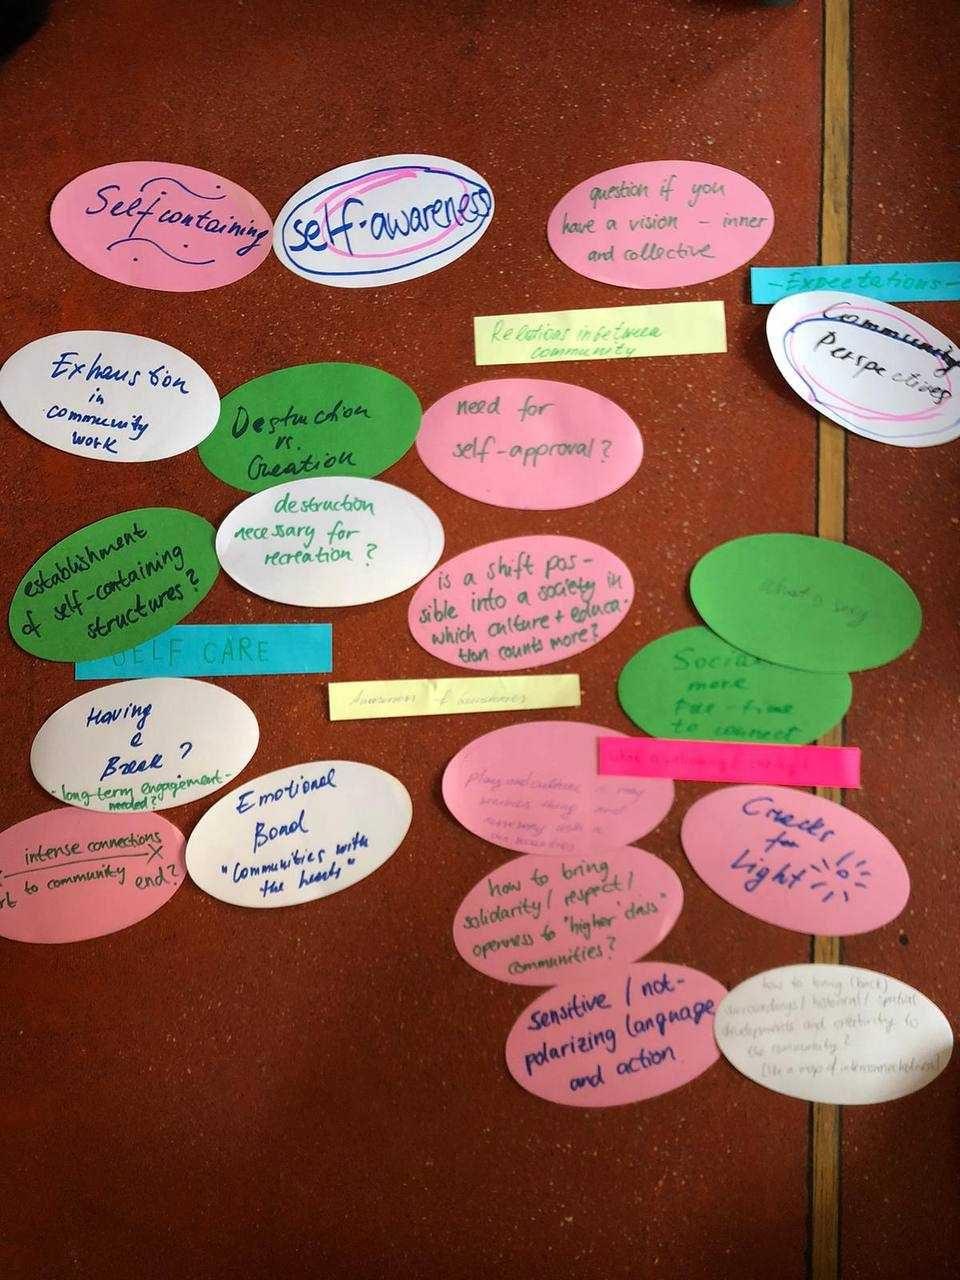 Self containing
self-awareness
question if you
have a vision – inner
and collective
- Expectations -
Community
Perspectives
Relations inbetween
community
Exhaustion
in
community
work
Destruction
vs.
Creation
need for
self-approval?
destruction
necessary for
recreation?
establishment
of self-containing
structures?
is a shift pos-
sible into a society in
which culture + educa-
tion counts more?
SELF CARE
Social
more
free-time
to connect
Having
a
Break?
- long-term engagement -
needed?
Emotional
Bond
"Communities with
the hearts"
intense connections
to community end?
Cracks
for
Light
how to bring
solidarity / respect /
openness to "higher class"
communities?
sensitive / not-
polarizing language
and action
how to bring (back)
surroundings / historical / spatial
developments and creativity to
the community?